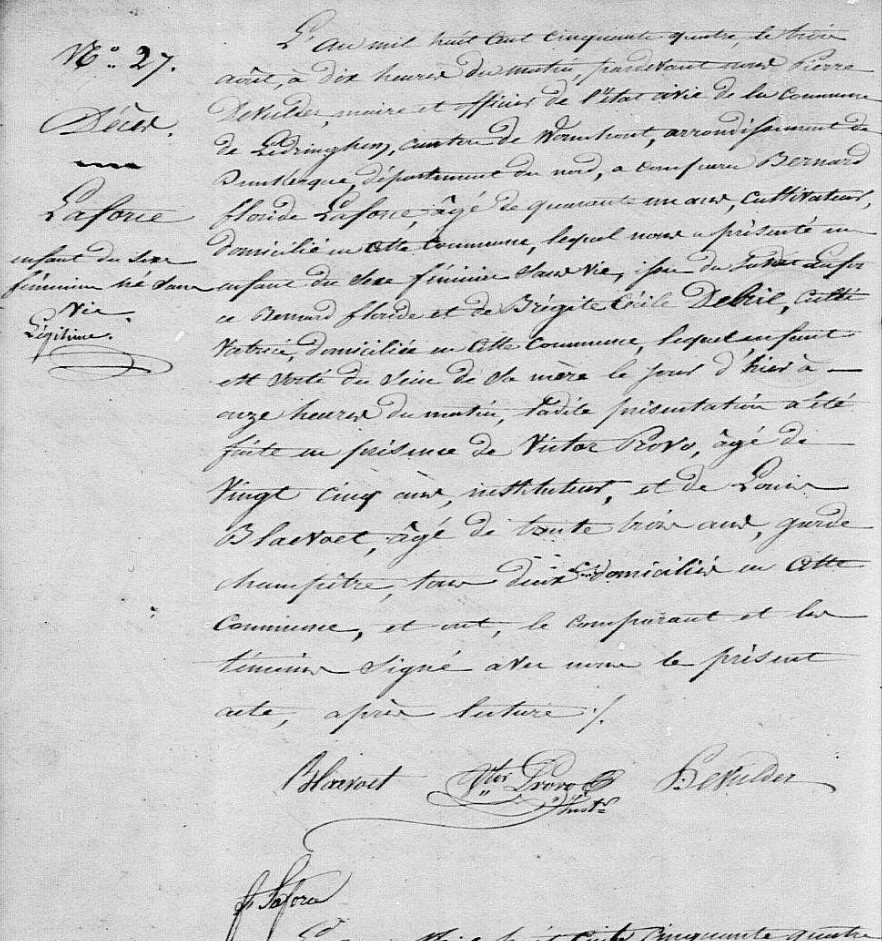 N.° 27.
Décès.
Laforce
enfant du sexe
féminin né sans
vie.
Légitime.
L'an mil huit cent cinquante quatre, le trois
août, à dix heures du matin, pardevant nous Pierre
DeVulder, maire et officier de l'état civil de la commune
de Ledringhem, canton de Wormhout, arrondissement de
Dunkerque, département du nord, a comparu Bernard
floride Laforce, âgé de quarante un ans, cultivateur,
domicilié en cette commune, lequel nous a présenté un
enfant du sexe féminin sans vie, issu du Lafor
ce Bernard floride et de Brégite Cécile Debril, culti
vatrice, domiciliée en cette commune, lequel enfant
est sorti du sein de sa mère le jour d'hier à
onze heures du matin, ladite présentation a été
faite en présence de Victor Provo, âgé de
vingt cinq ans, instituteur, et de Louis
Blaevoet, âgé de trente trois ans, garde
champêtre, tous deux domiciliés en cette
commune, et ont, le comparant et les
témoins signé avec nous le présent
acte, après lecture ./.
Blaevoet Vtor Provo DeVulder
instr
Laforce
L'an mil huit cent cinquante quatre